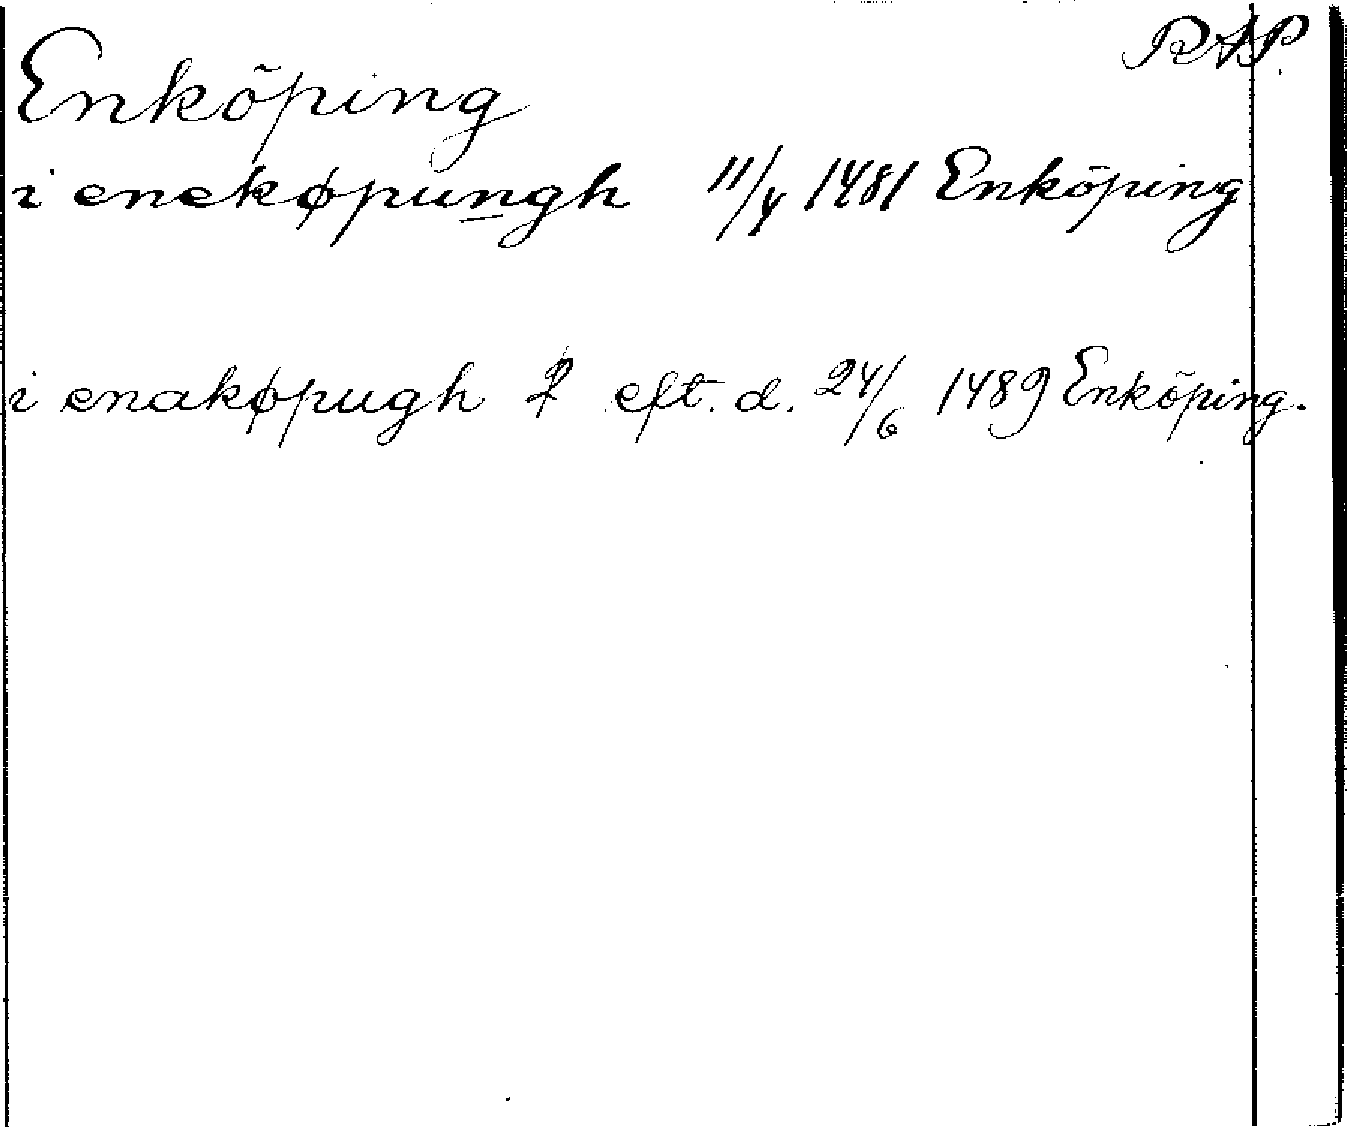 RAP.
Enköping
i enekøpungh 11/4 1481 Enköping
i enakøpugh eft. d. 24/6 1489 Enköping.